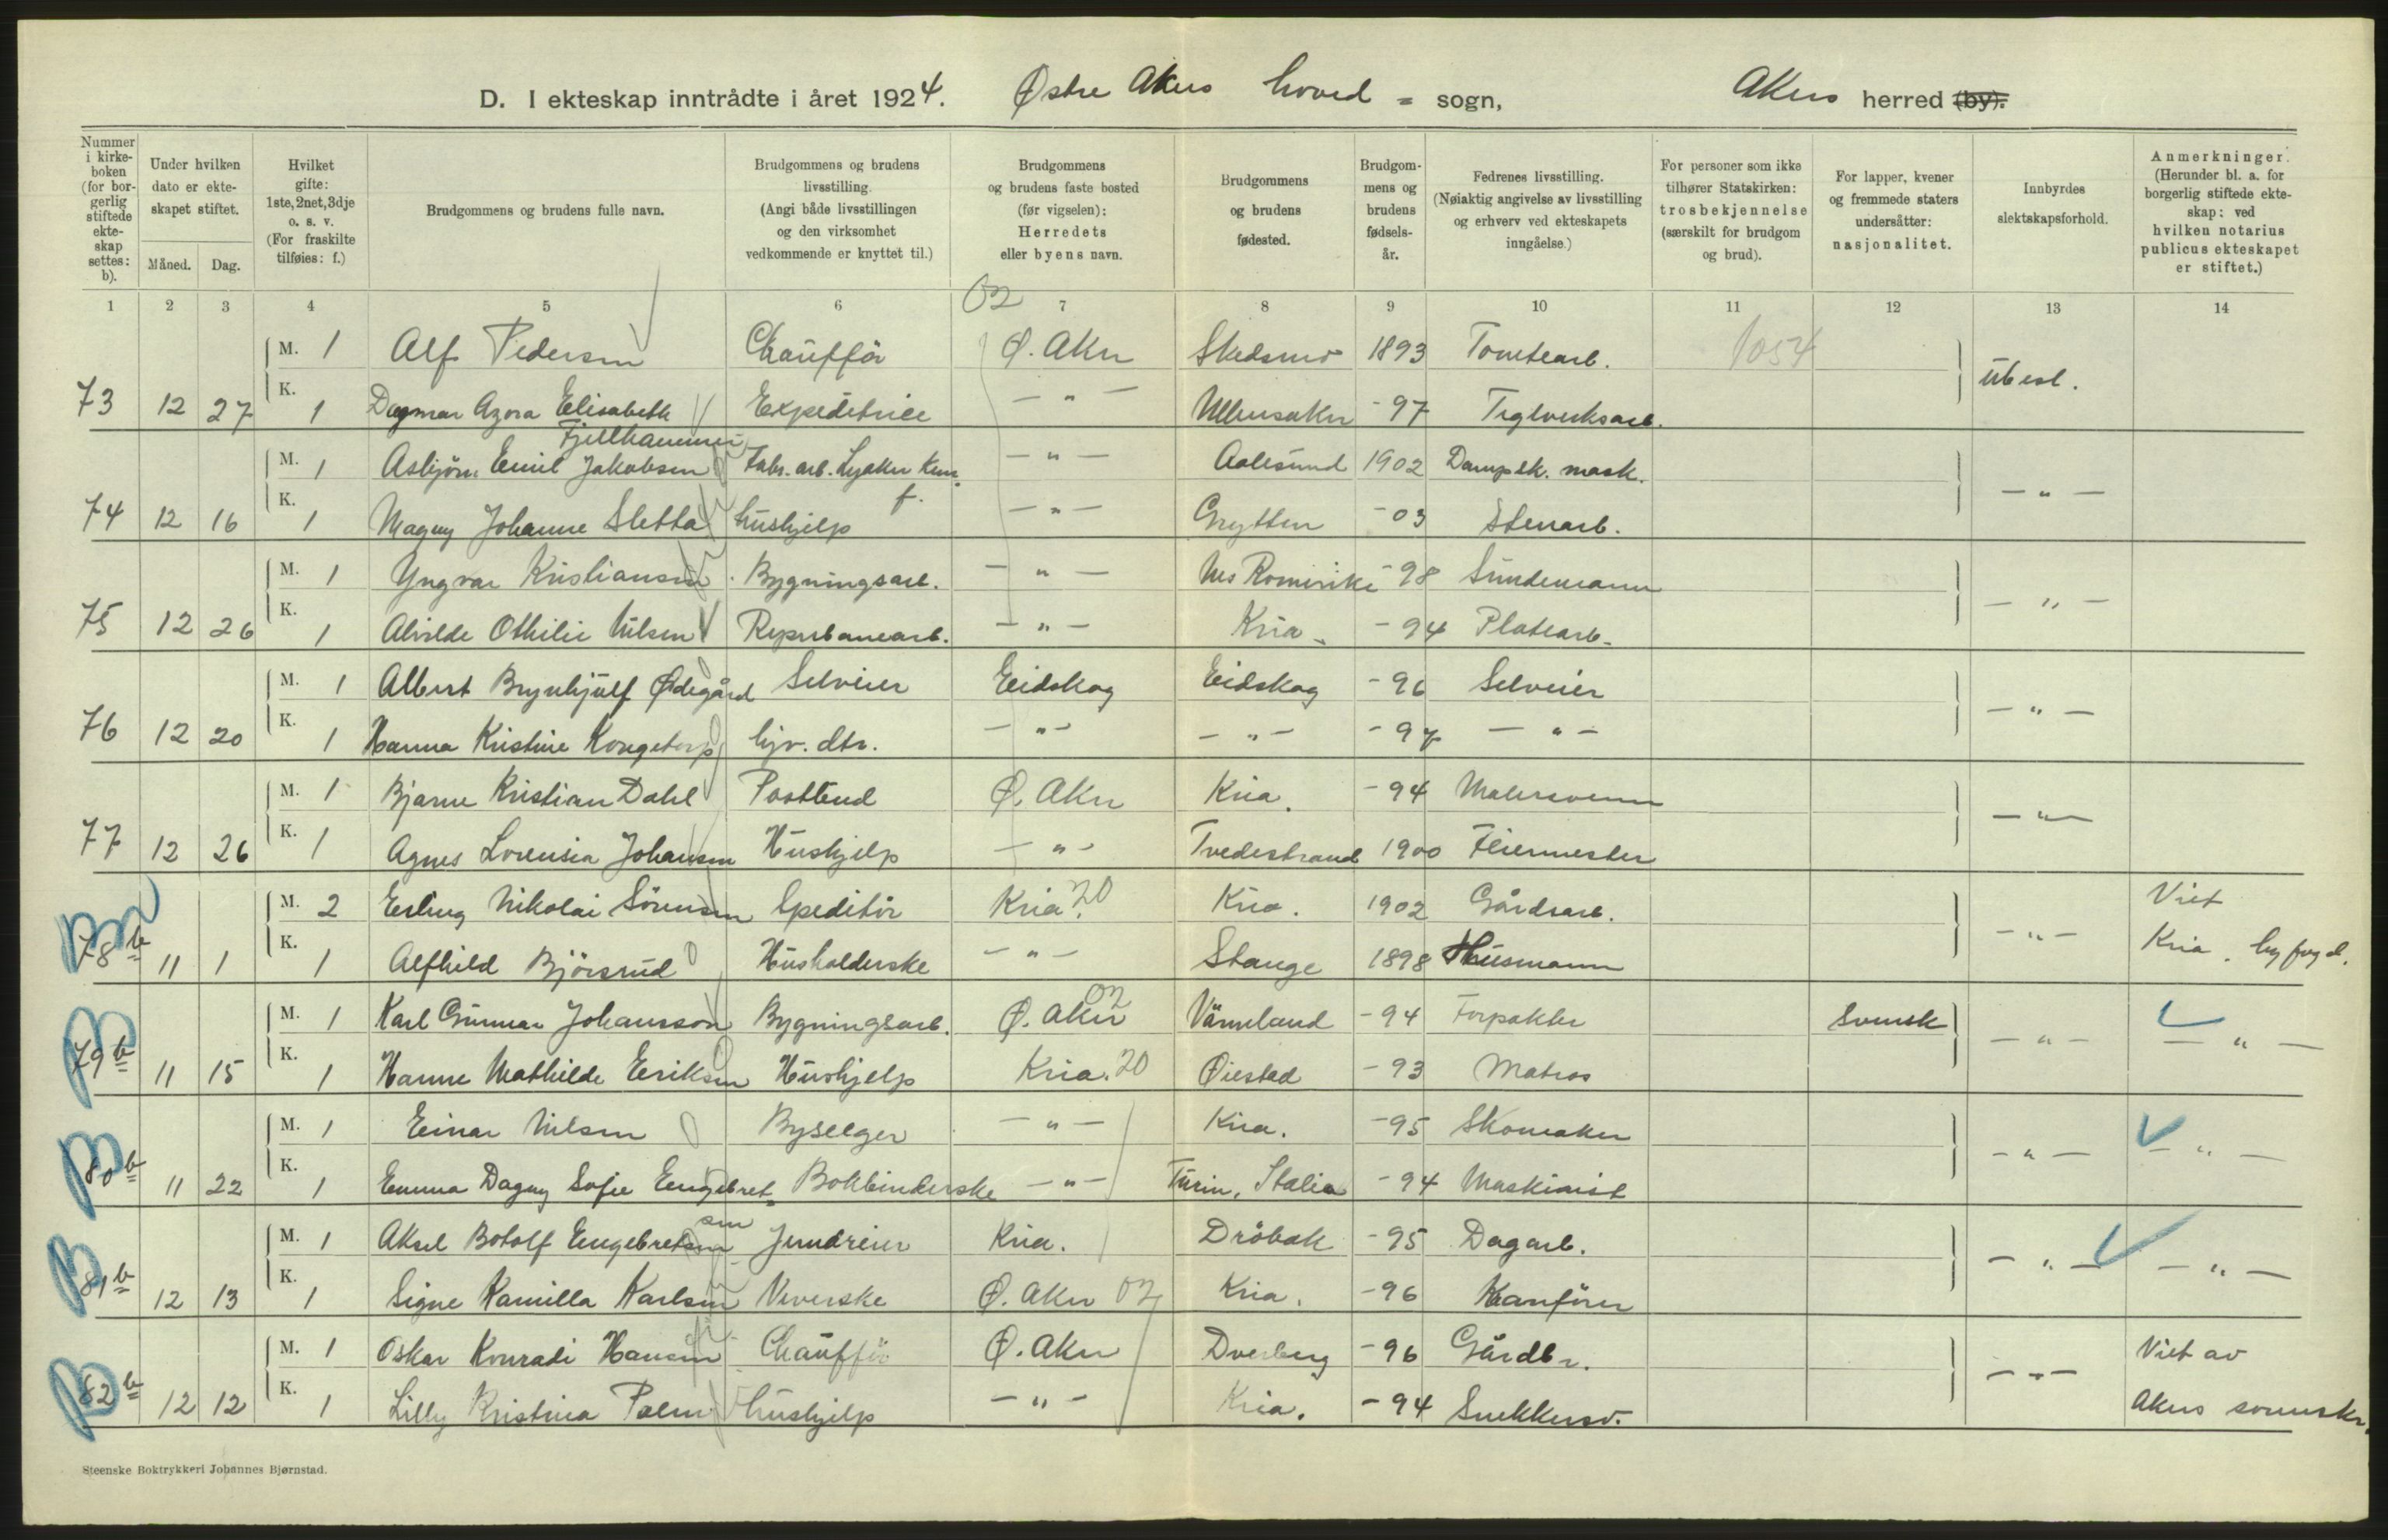 D. I ekteskap inntrådte i året 1924. Østre Akers hoved - sogn, Akers herred (by).
Nummer i kirkeboken (for borgerlig stiftede ekteskap settes: b).
Under hvilken dato er ekteskapet stiftet.
Måned. Dag.
Hvilket gifte: 1ste, 2net, 3dje o. s. v. (For fraskilte tilføies: f.)
Brudgommens og brudens fulle navn.
Brudgommens og brudens livsstilling. (Angi både livsstillingen og den virksomhet vedkommende er knyttet til.)
Brudgommens og brudens faste bosted (før vigselen): Herredets eller byens navn.
Brudgommens og brudens fødested.
Brudgommens og brudens fødselsår.
Fedrenes livsstilling. (Nøiaktig angivelse av livsstilling og erhverv ved ekteskapets inngåelse.)
For personer som ikke tilhører Statskirken: trosbekjennelse (særskilt for brudgom og brud).
For lapper, kvener og fremmede staters undersåtter: nasjonalitet.
Innbyrdes slektskapsforhold.
Anmerkninger. (Herunder bl. a. for borgerlig stiftede ekteskap: ved hvilken notarius publicus ekteskapet er stiftet.)
1 2 3 4 5 6 7 8 9 10 11 12 13 14
02
M. 1 Alf Pedersen Chaufför Ø. Aker Skedsmo 1893 Tomtearb. 1054
73 12 27 K. 1 Dagmar Azora Elisabeth Fjellhammer Expeditrice — " — Ullensaker -97 Teglverksarb. Ubesl.
M. 1 Asbjörn Emil Jakobsen Fabr. arb. Lysaker Kem. f. — " — Aalesund 1902 Dampsk. mask.
74 12 16 K. 1 Magny Johanne Sletta hushjelp — " — Grytten -03 Stenarb. — " —
M. 1 Yngvar Kristiansen Bygningsarb. — " — Nes Romerike -98 Sundemann
75 12 26 K. 1 Alvilde Othilie Nilsen Reperbanearb. — " — Kria. -94 Platearb. — " —
M. 1 Albert Brynhjulf Ødegård Selveier Eidskog Eidskog -96 Selveier
76 12 20 K. 1 Hanna Kristine Kongetorp hjv. dtr. — " — — " — -97 — " — — " —
M. 1 Bjarne Kristian Dahl Postbud Ø. Aker Kria. -94 Malersvenn
77 12 26 K. 1 Agnes Lorensia Johansen Hushjelp — " — Tvedestrand 1900 Feiermester — " —
M. 2 Erling Nikolai Sörensen Speditör Kria. 20 Kria. 1902 Gårdsarb. Viet
78 b 11 1 K. 1 Alfhild Björsrud Husholderske — " — Stange 1898 Husmann — " — Kria. byfogd.
M. 1 Karl Gunnar Johansson Bygningsarb. Ø. Aker 02 Värmland -94 Forpakter Svensk
79 b 11 15 K. 1 Hanne Mathilde Eriksen Hushjelp Kria. 20 Øiestad -93 Matros — " — — " —
M. 1 Einar Nilsen Byselger — " — Kria. -95 Skomaker
80 b 11 22 K. 1 Emma Dagny Sofie Engebretsen Bokbinderske — " — Turin, Italia -94 Maskinist — " — — " —
M. 1 Aksel Botolf Engebretsen Jerndreier Kria. Dröbak -95 Dagarb.
81 b 12 13 K. 1 Signe Kamilla Karlsen Veverske Ø. Aker 02 Kria. -96 Kranförer — " — — " —
M. 1 Oskar Konradi Hansen Chaufför Ø. Aker Dverberg -96 Gårdbr. Viet av
82 b 12 12 K. 1 Lilly Kristina Palm hushjelp — " — Kria. -94 Snekkersv. — " — Akers sorenskr.
Steenske Boktrykkeri Johannes Bjørnstad.